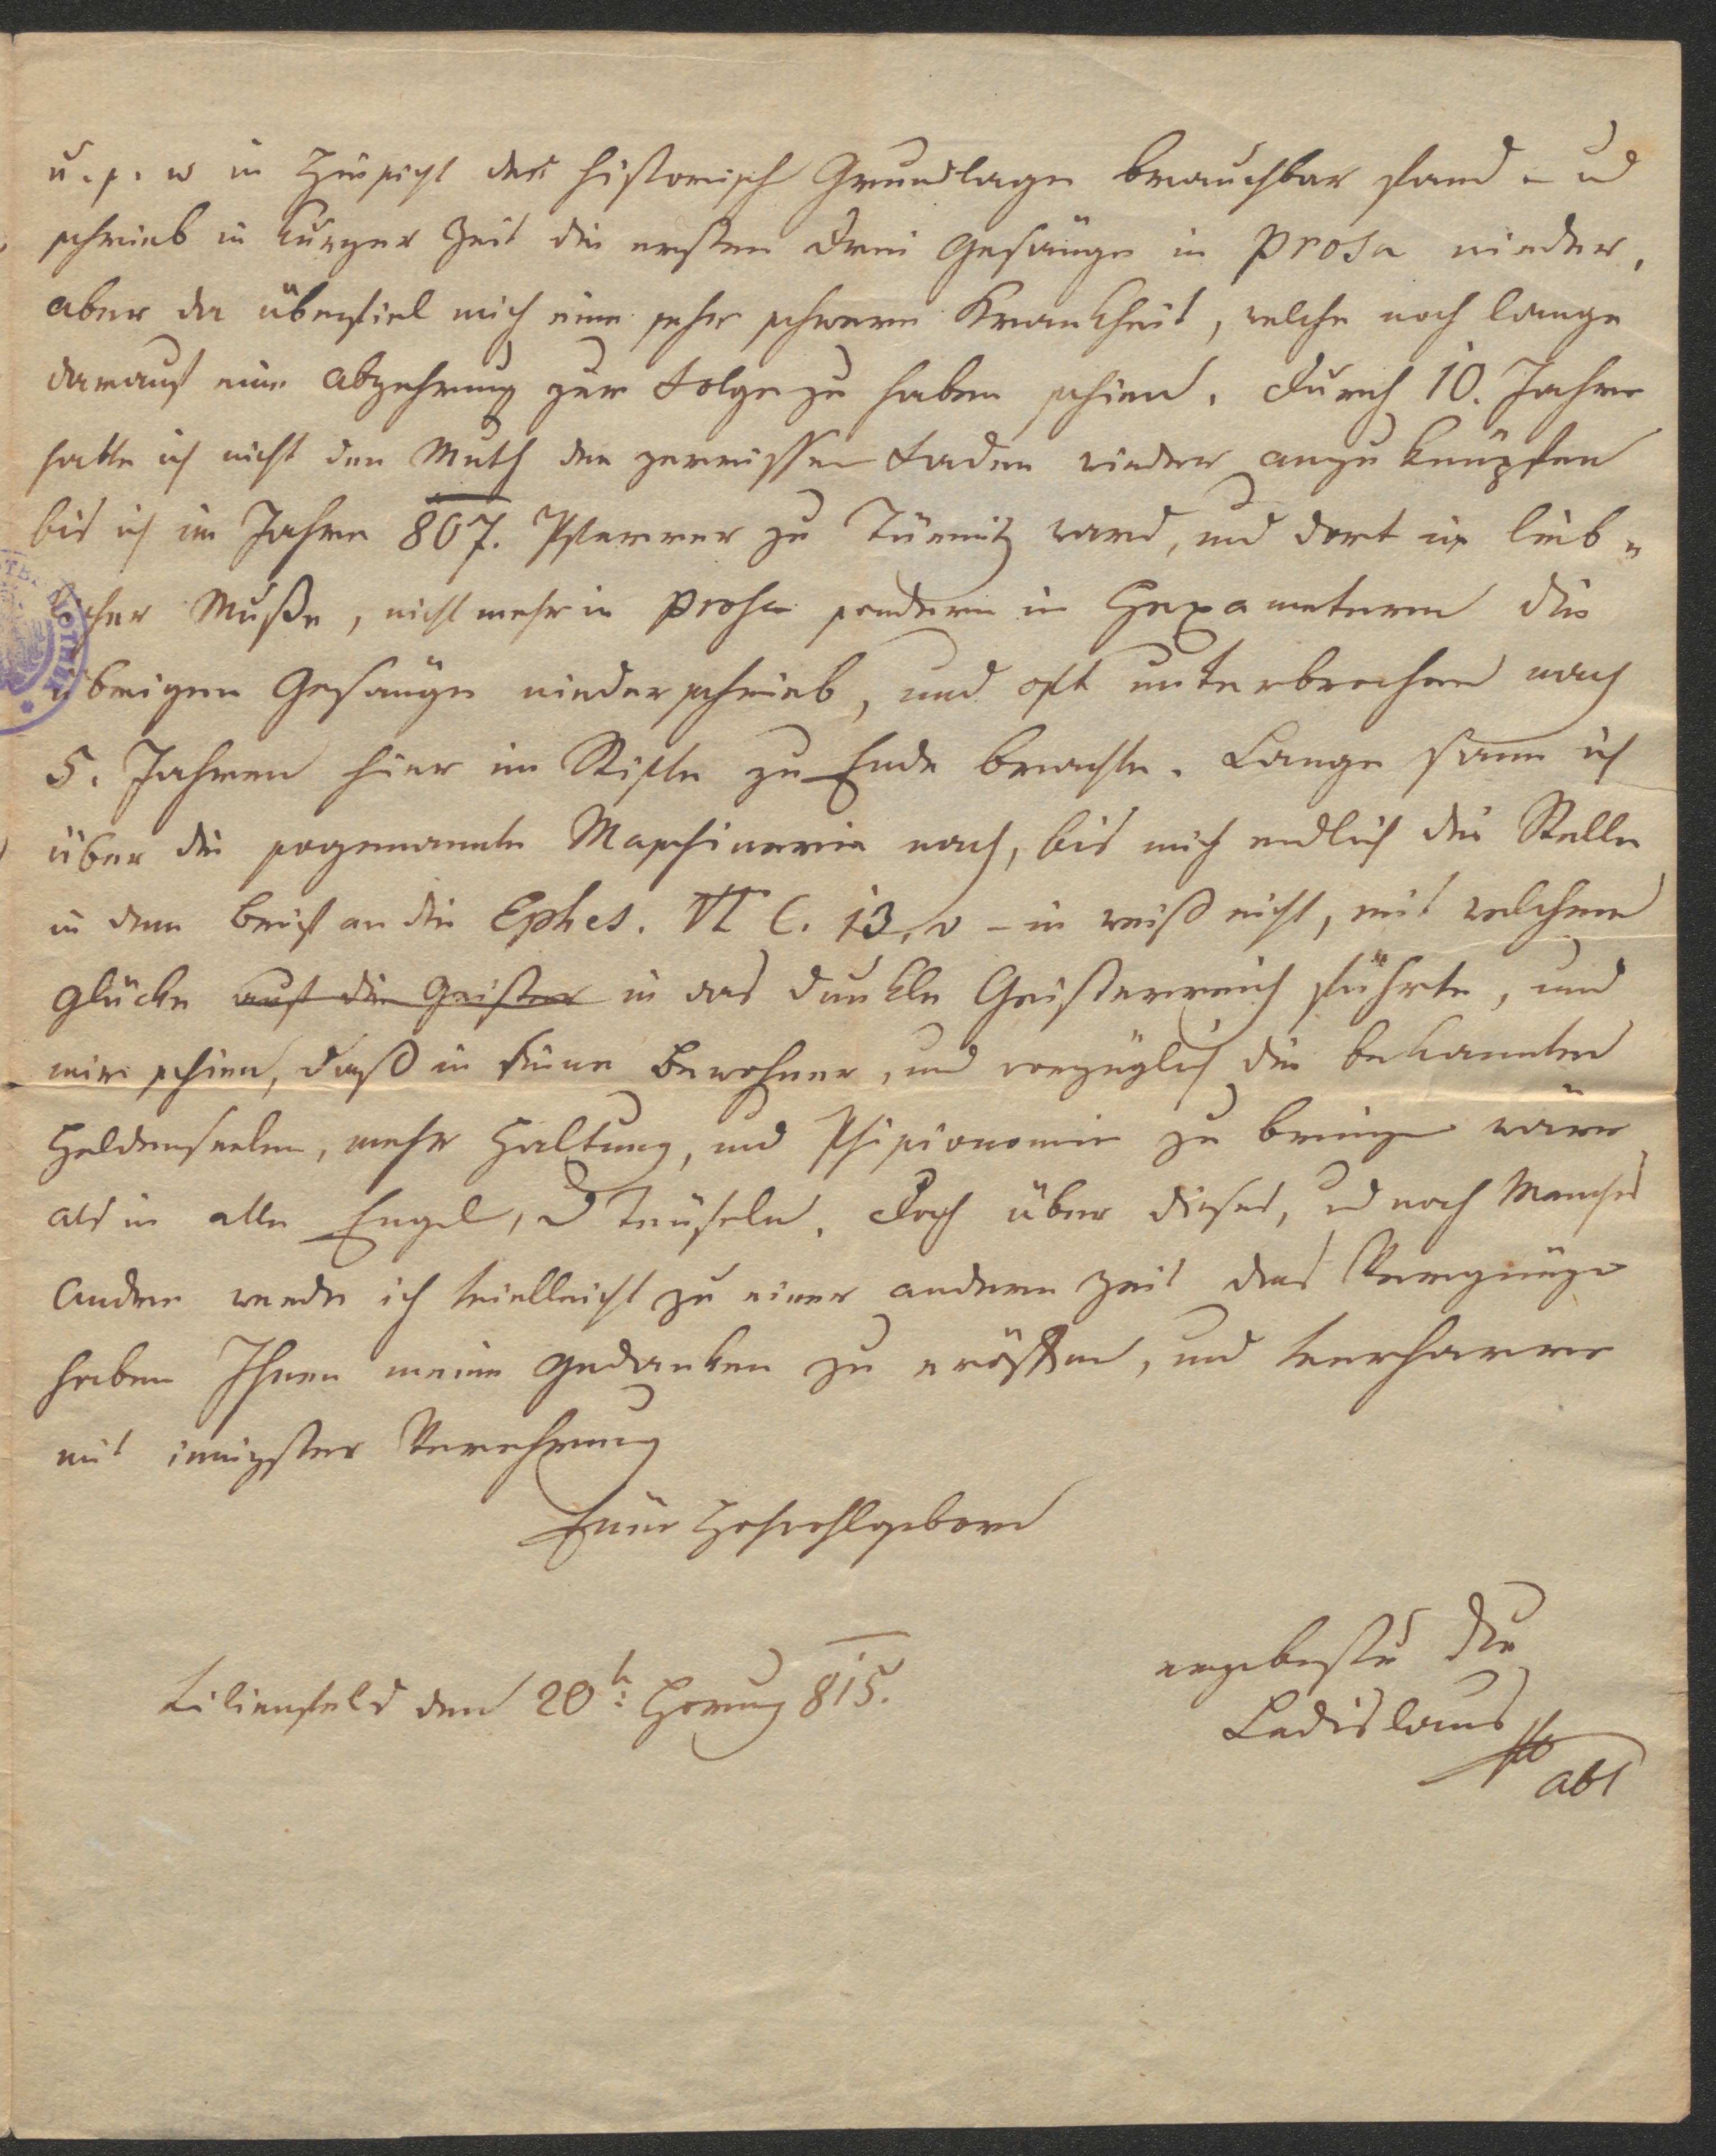 u. s. w in Hinsicht der historisch Grundlage brauchbar fand – ud
schrieb in kurzer Zeit die ersten drei Gesänge in Prosa nieder,
aber da überfiel mich eine sehr schwere Krankheit, welche noch lange
darauf eine Abzehrung zur Folge zu haben schien. Durch 10. Jahre
hatte ich nicht den Muth den zerrissen Faden wieder anzuknüpfen
bis ich im Jahre 807. Pfarrer zu Türnitz ward, und dort in lieb-
licher Muße, nicht mehr in Prosa sondern in Hexametern die
übrigen Gesänge niederschrieb, und oft unterbrochen nach
5. Jahren hier im Stifte zu Ende brachte. Lange sann ich
über die sogenannte Maschinerie nach, bis mich endlich die Stelle
in dem Brief an die Ephes. VI C. 13, v – ich weiß nicht, mit welchem
Glücke auf die Geister in das dunkle Geisterreich führte, und
mir schien, daß in seine Bewohner, und vorzüglich die bekannten
Heldenseelen, mehr Haltung, und Phisionomie zu bringen wäre
als in alle Engel, ud Teufeln. Doch über dieses, ud noch Manches
Andre werde ich vielleicht zu einer andern Zeit das Vergnügen
haben Ihnen meine Gedanken zu eröffnen, und verharre
mit innigster Verehrung
Euer Hochwohlgeborn
ergebenster Dr
Lilienfeld den 20t: Hornung 815.
Ladislaus
Abt